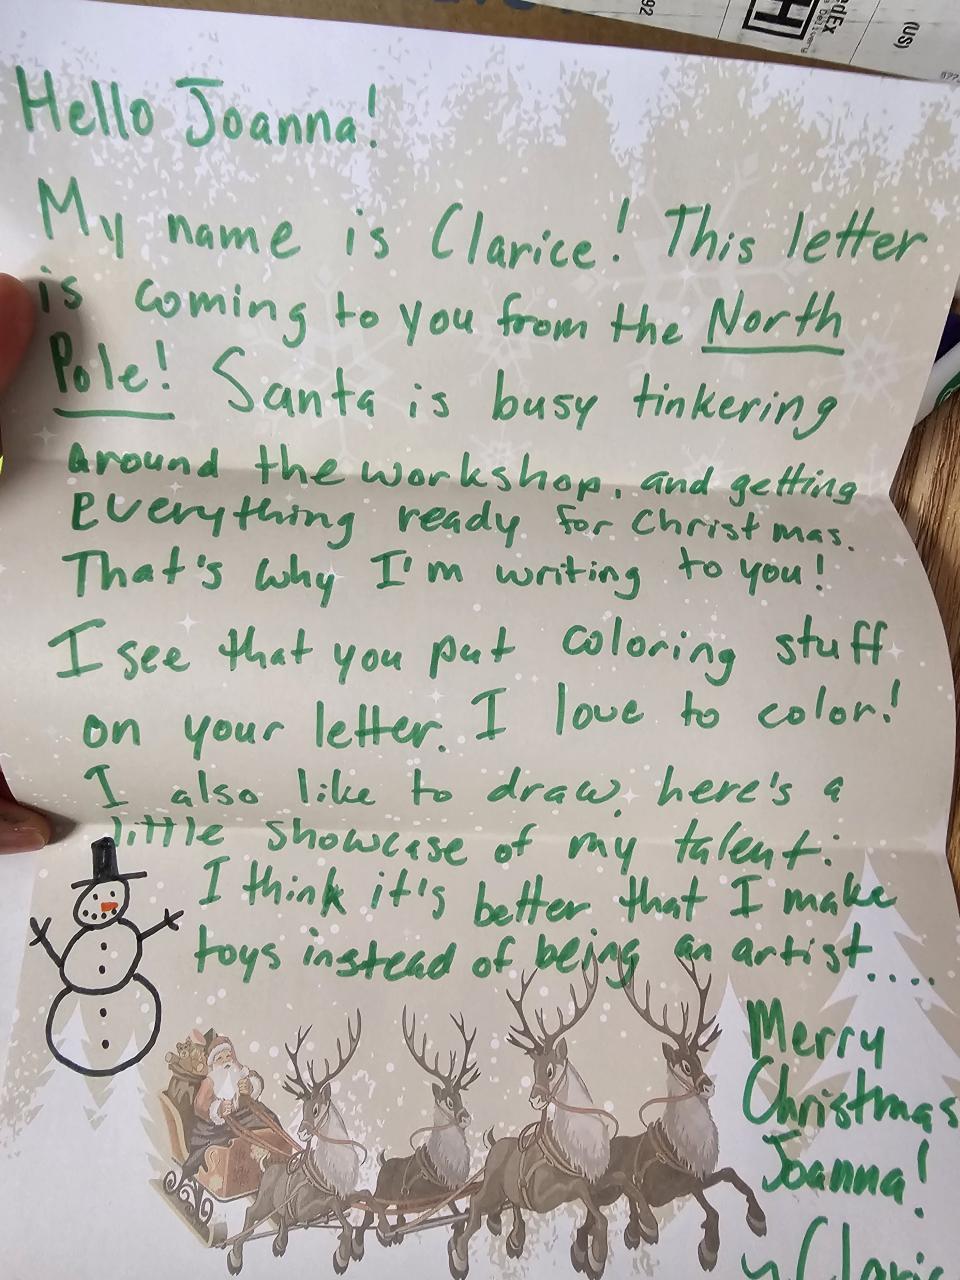 92
edEx
H
(US)
Hello Joanna!
My name is Clarice! This letter
is coming to you from the North
Pole! Santa is busy tinkering
around the workshop, and getting
Everything ready for Christmas.
That's why I'm writing to you!
I see that you put coloring stuff
on your letter. I love to color!
I also like to draw, here's a
little showcase of my talent:
I think it's better that I make
toys instead of being an artist....
Merry
Christmas
Joanna!
Claric